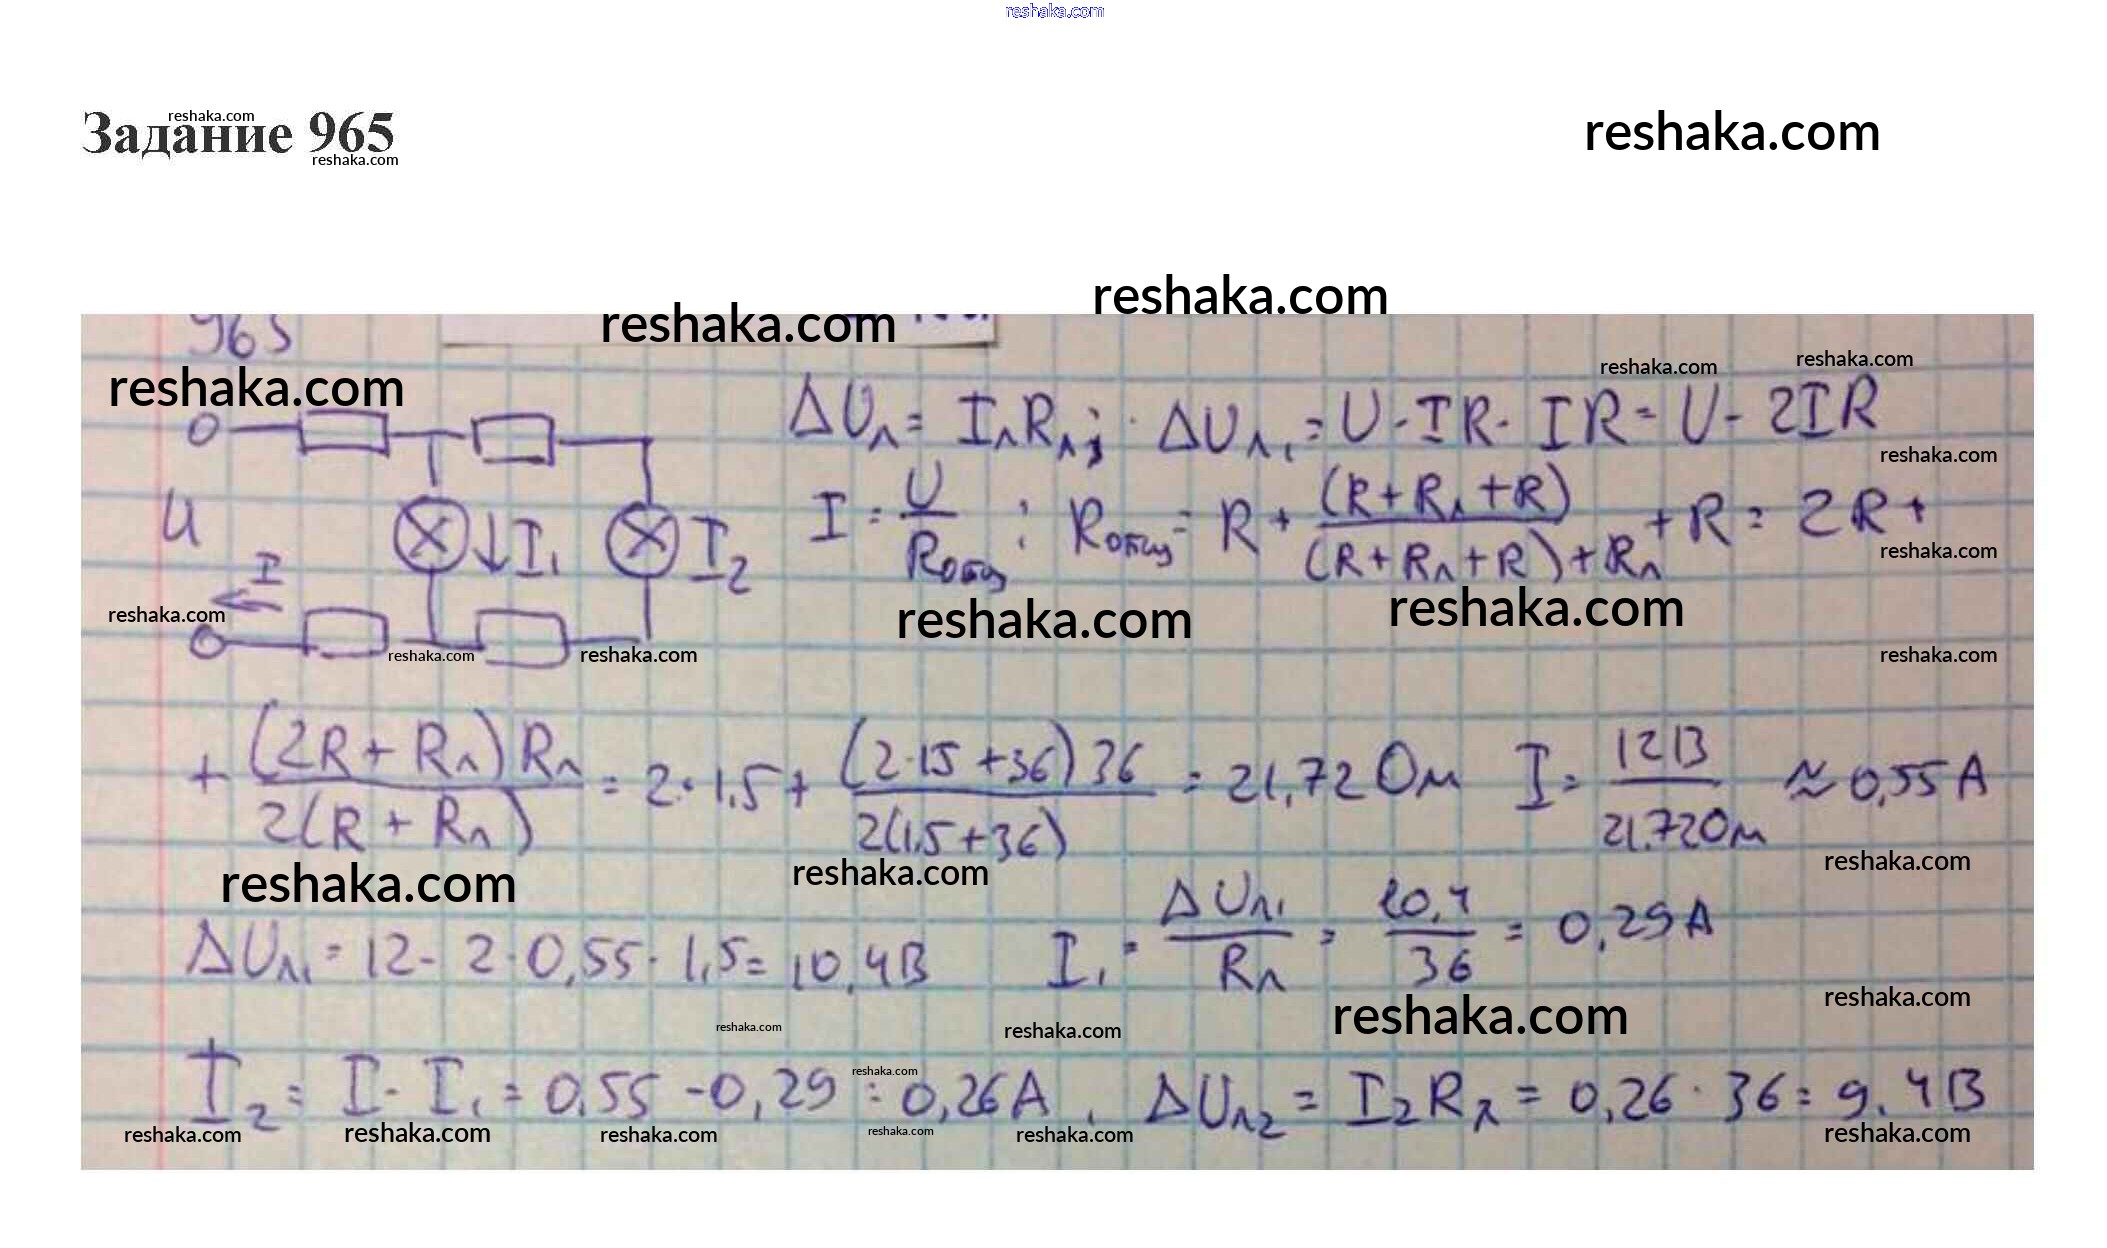 reshaka.com
Задание 965
reshaka.com
reshaka.com
reshaka.com
reshaka.com
reshaka.com
965
reshaka.com
reshaka.com
reshaka.com
ΔUл = IлRл; ΔUл1 = U - IR - IR = U - 2IR
reshaka.com
U
I1
I2
I
I = U/Rобщ ; Rобщ = R + (R + Rл + R)/((R + Rл + R) + Rл) + R = 2R +
reshaka.com
reshaka.com
reshaka.com
reshaka.com
reshaka.com
reshaka.com
reshaka.com
+ (2R + Rл)Rл/2(R + Rл) = 2·1,5 + (2·15 + 36)36/2(1,5 + 36) = 21,72 Ом I = 12В/21,72Ом ≈ 0,55 А
reshaka.com
reshaka.com
reshaka.com
ΔUл1 = 12 - 2·0,55·1,5 = 10,4В I1 = ΔUл1/Rл = 10,4/36 = 0,29А
reshaka.com
reshaka.com
reshaka.com
reshaka.com
reshaka.com
I2 = I - I1 = 0,55 - 0,29 = 0,26А, ΔUл2 = I2Rл = 0,26·36 = 9,4В
reshaka.com
reshaka.com
reshaka.com
reshaka.com
reshaka.com
reshaka.com